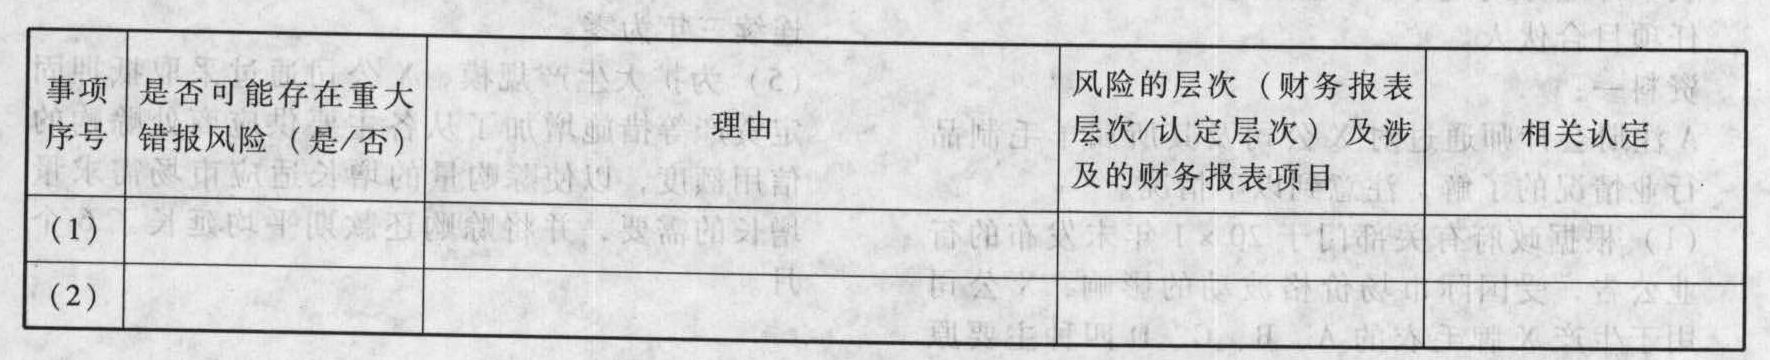 事项
序号
是否可能存在重大
错报风险（是/否）
理由
风险的层次（财务报表
层次/认定层次）及涉
及的财务报表项目
相关认定
(1)
(2)